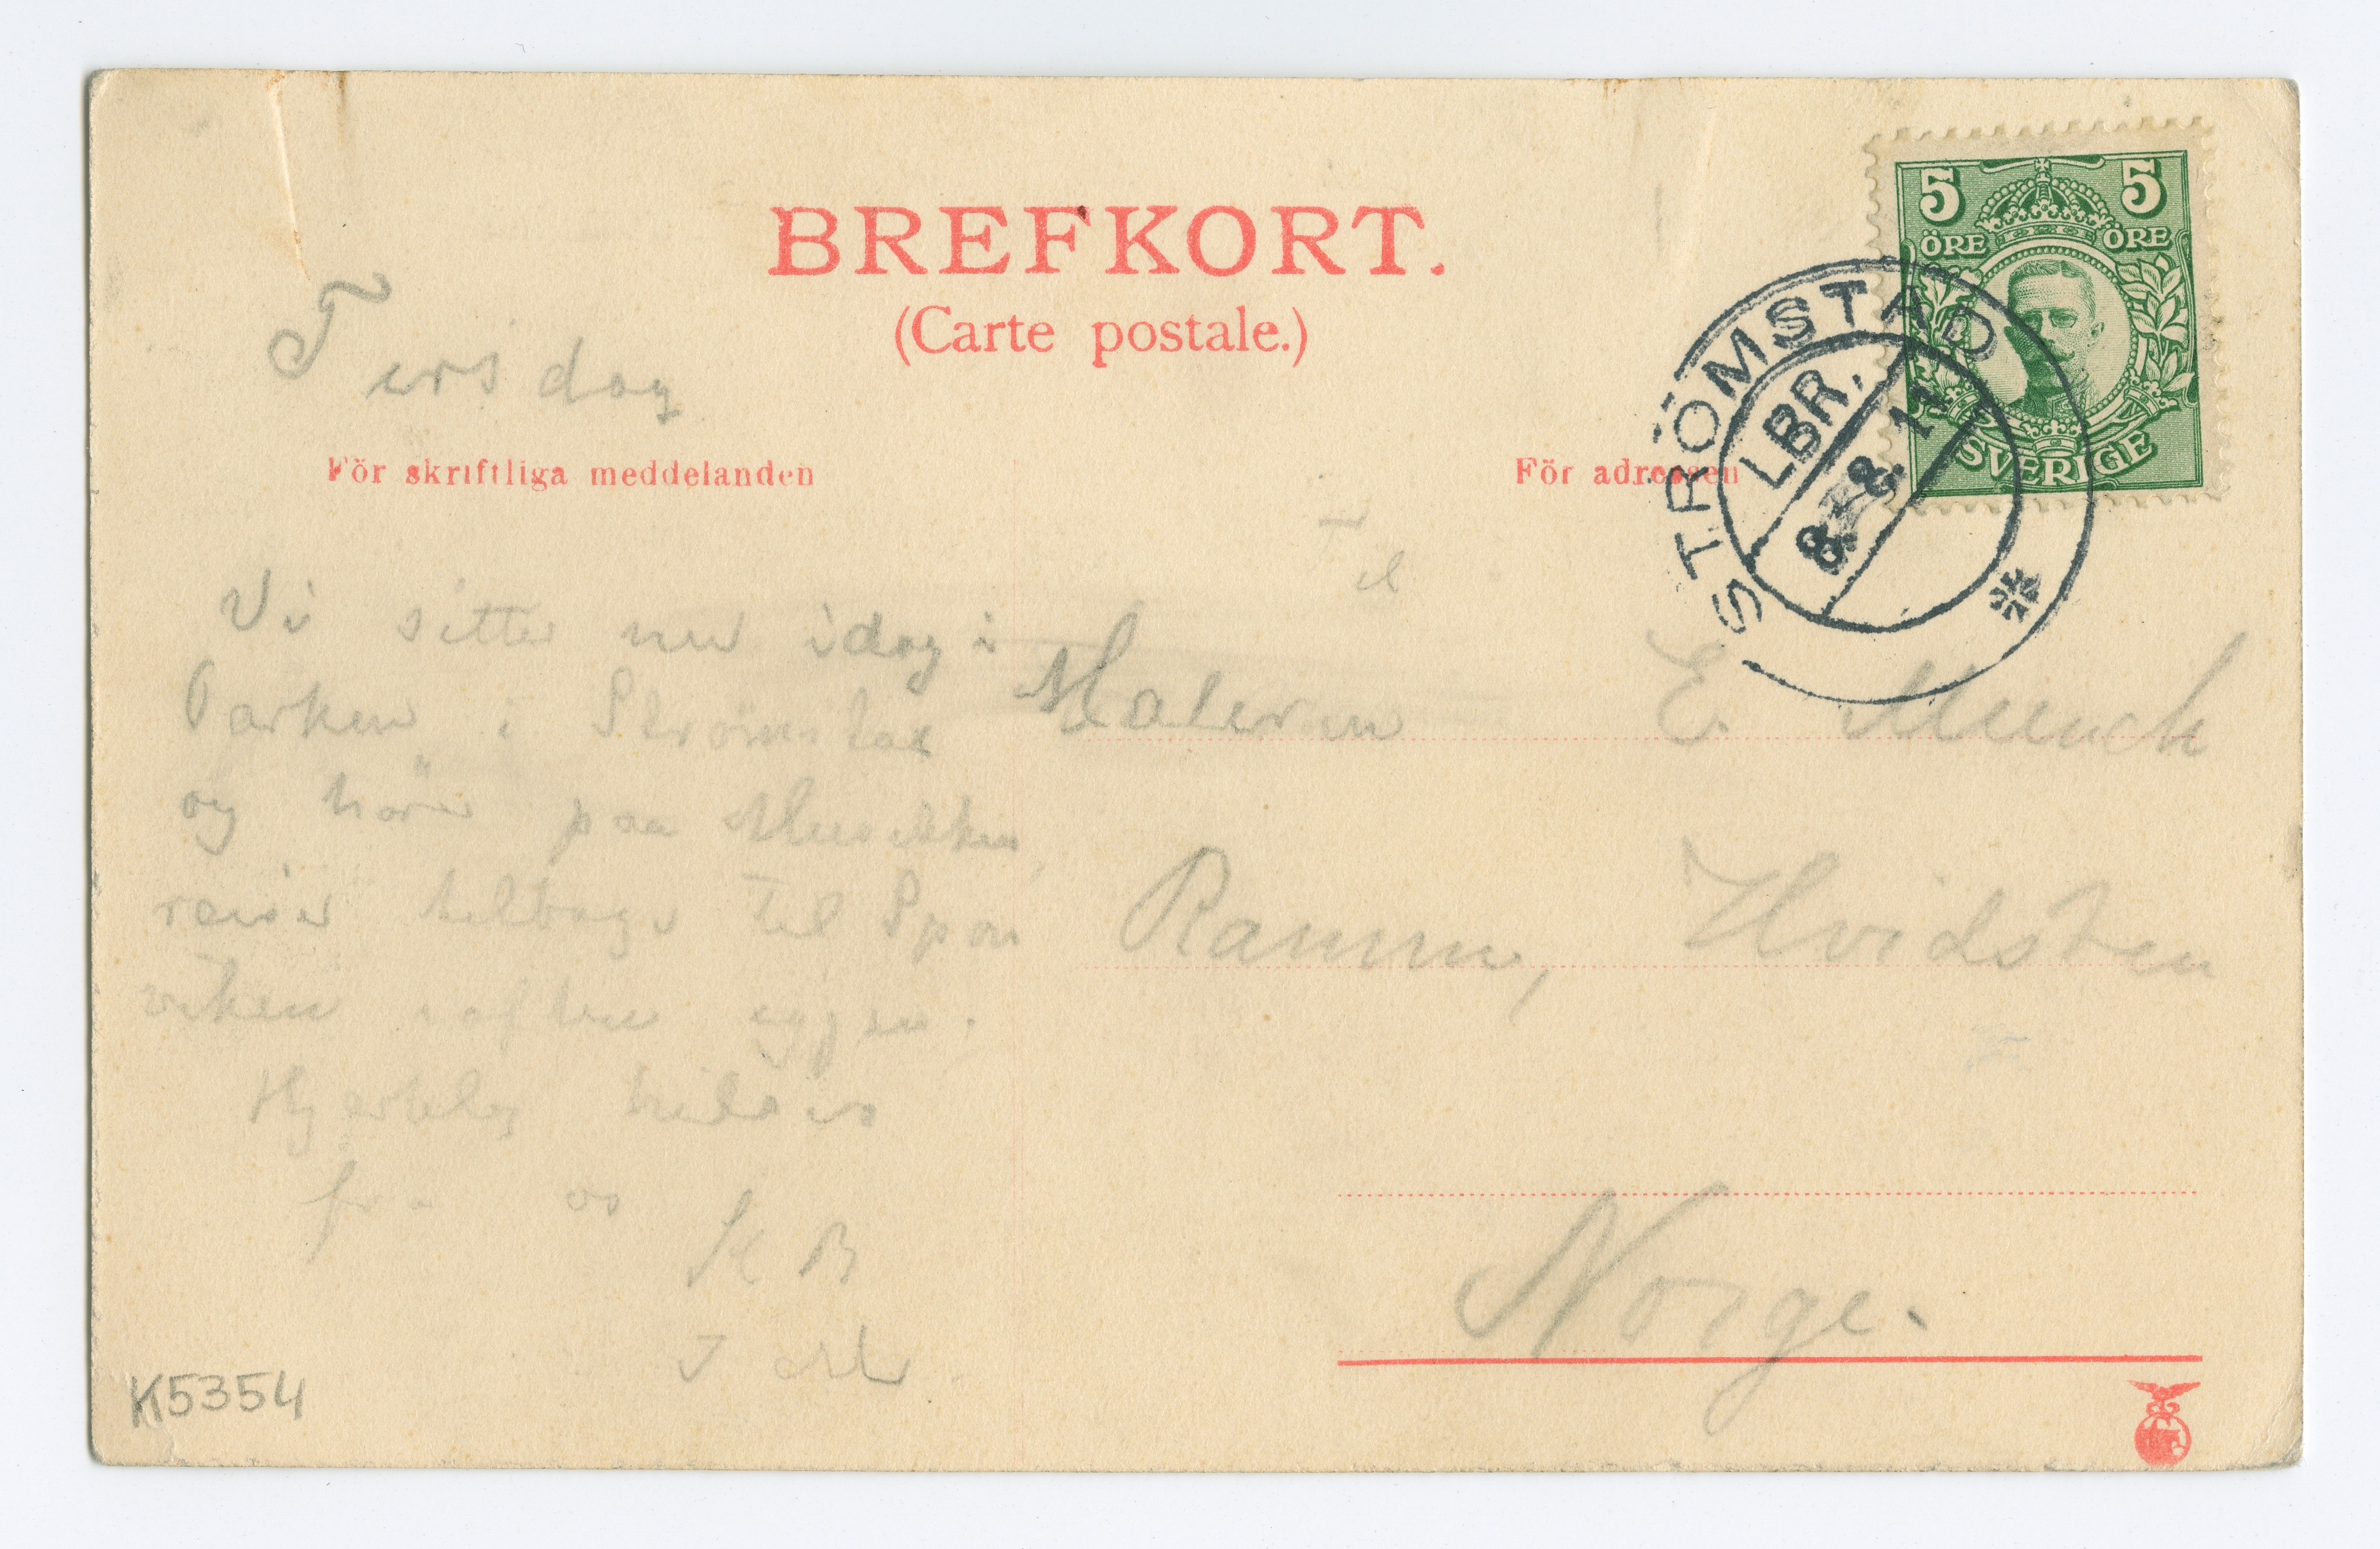 BREFKORT.
(Carte postale.)
5 5
ÖRE ÖRE
SVERIGE
STRÖMSTAD
LBR.
8. 8. 11
Tirsdag
För skriftliga meddelanden
För adressen
Vi sitter nu idag i
Parken i Strømstad
og hører paa Musikken
reiser tilbage til Spon
viken iaften igjen.
Hjertelig hilsen
fra os
Til
Maleren E. Munch
Ramm, Hvidsten
Norge.
K5354